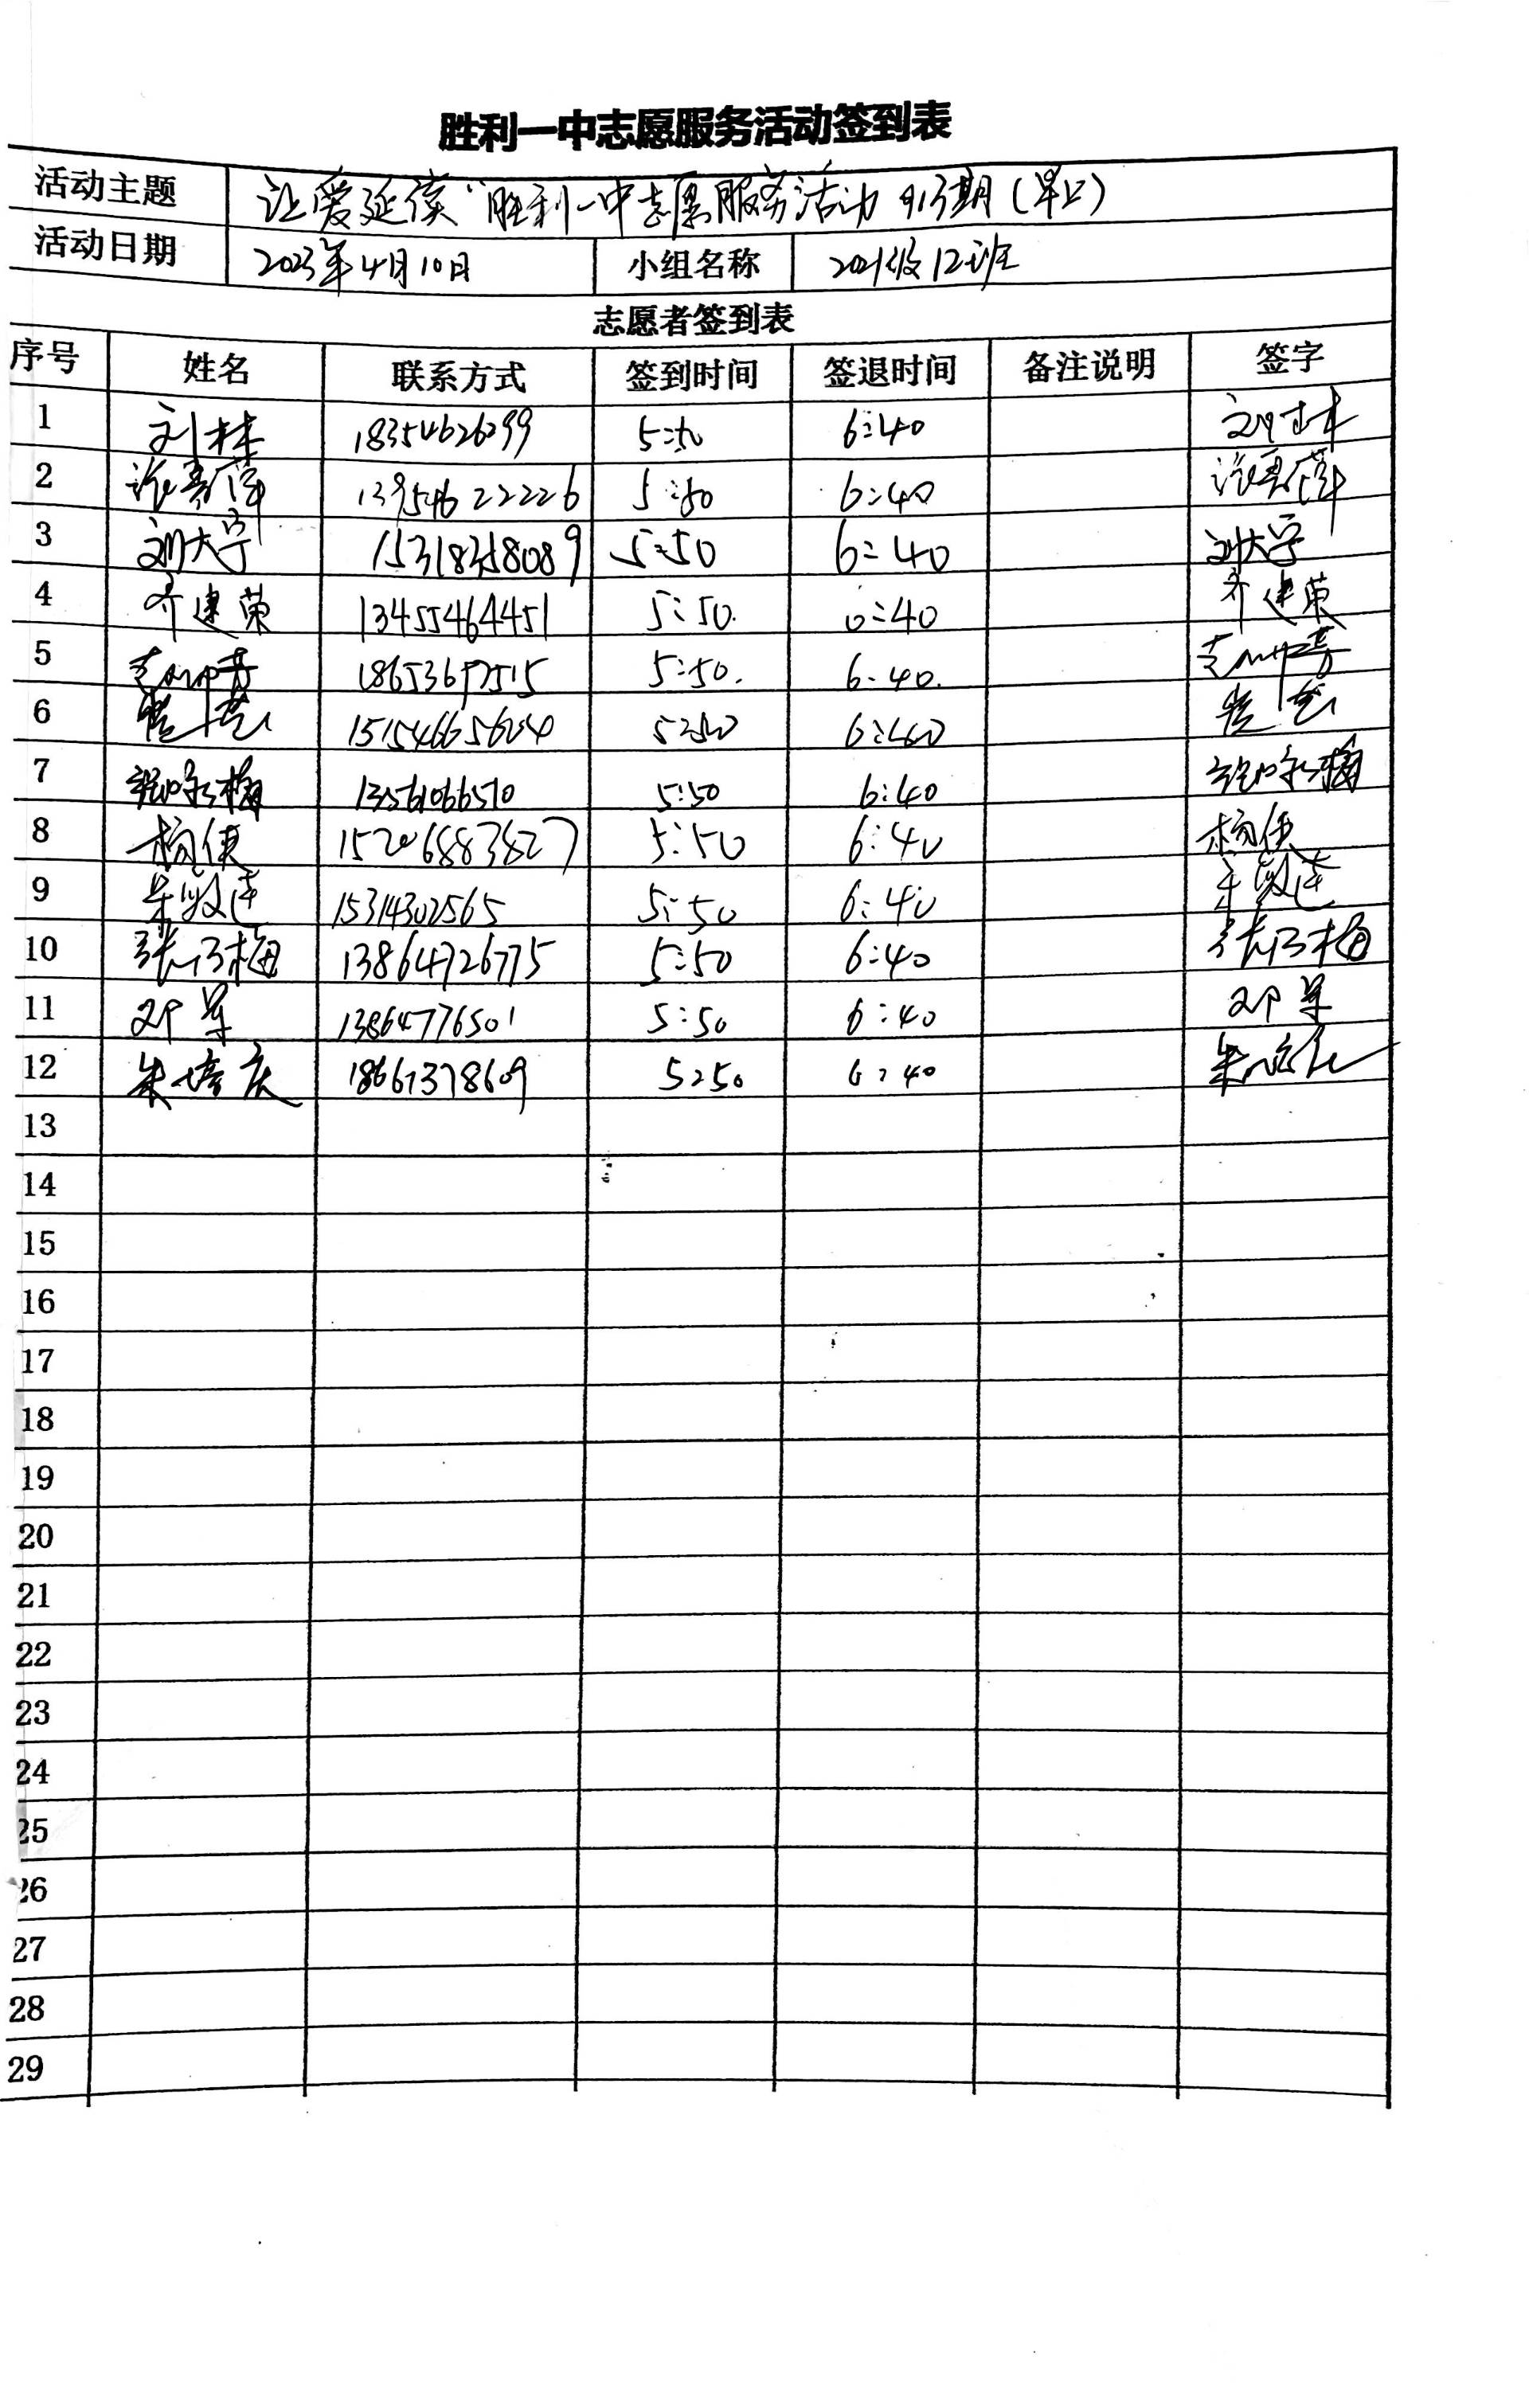 胜利一中志愿服务活动签到表
活动主题 让爱延续"胜利一中志愿服务活动 913期(早上)
活动日期 2023年4月10日 小组名称 2021级12班
志愿者签到表
序号 姓名 联系方式 签到时间 签退时间 备注说明 签字
1 刘林 18354626299 5:50 6:40 刘林
2 13954622226 5:50 6:40
3 刘大宁 15318358089 5:50 6:40 刘大宁
4 齐建荣 13455464451 5:50. 6:40 齐建荣
5 5:50. 6:40.
6 5:50 6:40
7 13561066510 5:50 6:40
8 杨侠 15206883827 5:50 6:40 杨侠
9 15314302565 5:50 6:40
10 13864726775 5:50 6:40
11 邓军 13864776501 5:50 6:40 邓军
12 朱培庆 18661378609 5:50 6:40
13
14
15
16
17
18
19
20
21
22
23
24
25
26
27
28
29